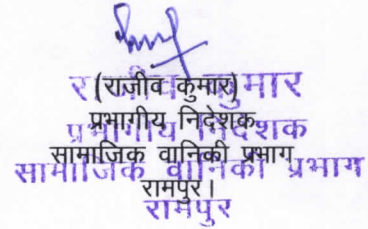 (राजीव कुमार)
प्रभागीय निदेशक
सामाजिक वानिकी प्रभाग
रामपुर।
राजीव कुमार
प्रभागीय निदेशक
सामाजिक वानिकी प्रभाग
रामपुर